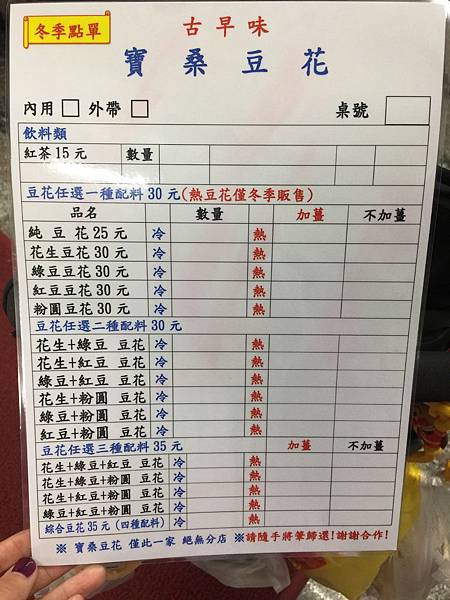 冬季點單
古早味
寶桑豆花
內用 □ 外帶 □ 桌號
飲料類
紅茶15元 數量
豆花任選一種配料30元(熱豆花僅冬季販售)
品名 數量 加薑 不加薑
純豆花25元 冷 熱
花生豆花30元 冷 熱
綠豆豆花30元 冷 熱
紅豆豆花30元 冷 熱
粉圓豆花30元 冷 熱
豆花任選二種配料30元
花生+綠豆 豆花 冷 熱
花生+紅豆 豆花 冷 熱
綠豆+紅豆 豆花 冷 熱
花生+粉圓 豆花 冷 熱
綠豆+粉圓 豆花 冷 熱
紅豆+粉圓 豆花 冷 熱
豆花任選三種配料35元 加薑 不加薑
花生+綠豆+紅豆 豆花 冷 熱
花生+綠豆+粉圓 豆花 冷 熱
花生+紅豆+粉圓 豆花 冷 熱
綠豆+紅豆+粉圓 豆花 冷 熱
綜合豆花35元 (四種配料) 冷 熱
※ 寶桑豆花 僅此一家 絕無分店 ※請隨手將筆歸還!謝謝合作!